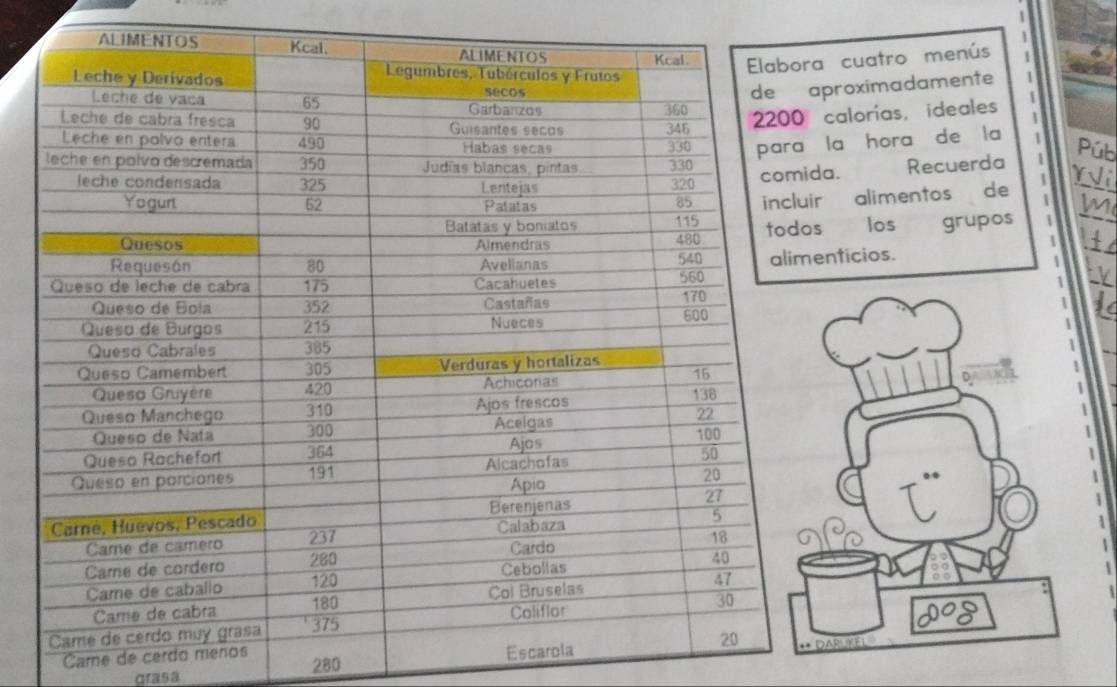 ALIMENTOS Kcal.
Leche y Derivados
Leche de vaca 65
Leche de cabra fresca 90
Leche en polvo entera 490
leche en polvo descremada 350
leche condensada 325
Yogurt 62
Quesos
Requesón 80
Queso de leche de cabra 175
Queso de Bola 352
Queso de Burgos 215
Queso Cabrales 385
Queso Camembert 305
Queso Gruyére 420
Queso Manchego 310
Queso de Nata 300
Queso Rochefort 364
Queso en porciones 191
Carne, Huevos, Pescado
Carne de carnero 237
Carne de cordero 280
Carne de caballo 120
Carne de cabra 180
Carne de cerdo muy grasa 375
Carne de cerdo menos
grasa 280
ALIMENTOS Kcal.
Legumbres, Tubérculos y Frutos
secos
Garbanzos 360
Guisantes secos 346
Habas secas 330
Judías blancas, pintas... 330
Lentejas 320
Patatas 85
Batatas y boniatos 115
Almendras 480
Avellanas 540
Cacahuetes 560
Castañas 170
Nueces 600
Verduras y hortalizas
Achicorias 16
Ajos frescos 138
Acelgas 22
Ajos 100
Alcachofas 50
Apio 20
Berenjenas 27
Calabaza 5
Cardo 18
Cebollas 40
Col Bruselas 47
Coliflor 30
Escarola 20
Elabora cuatro menús
de aproximadamente
2200 calorías, ideales
para la hora de la
comida. Recuerda
incluir alimentos de
todos los grupos
alimenticios.
DARUKEL
DARUKEL®
Púb